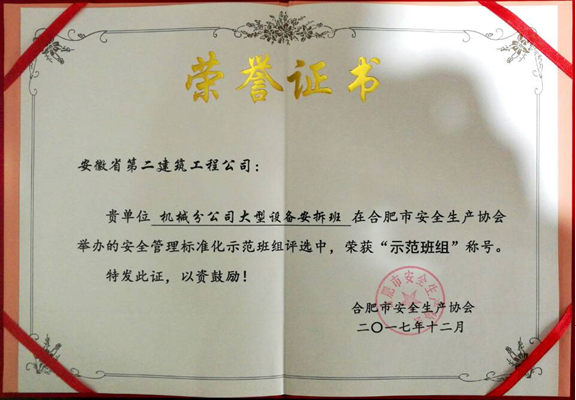 荣誉证书
安徽省第二建筑工程公司：
贵单位 机械分公司大型设备安拆班 在合肥市安全生产协会
举办的安全管理标准化示范班组评选中，荣获“示范班组”称号。
特发此证，以资鼓励！
合肥市安全生产协会
合肥市安全生产协会
二〇一七年十二月